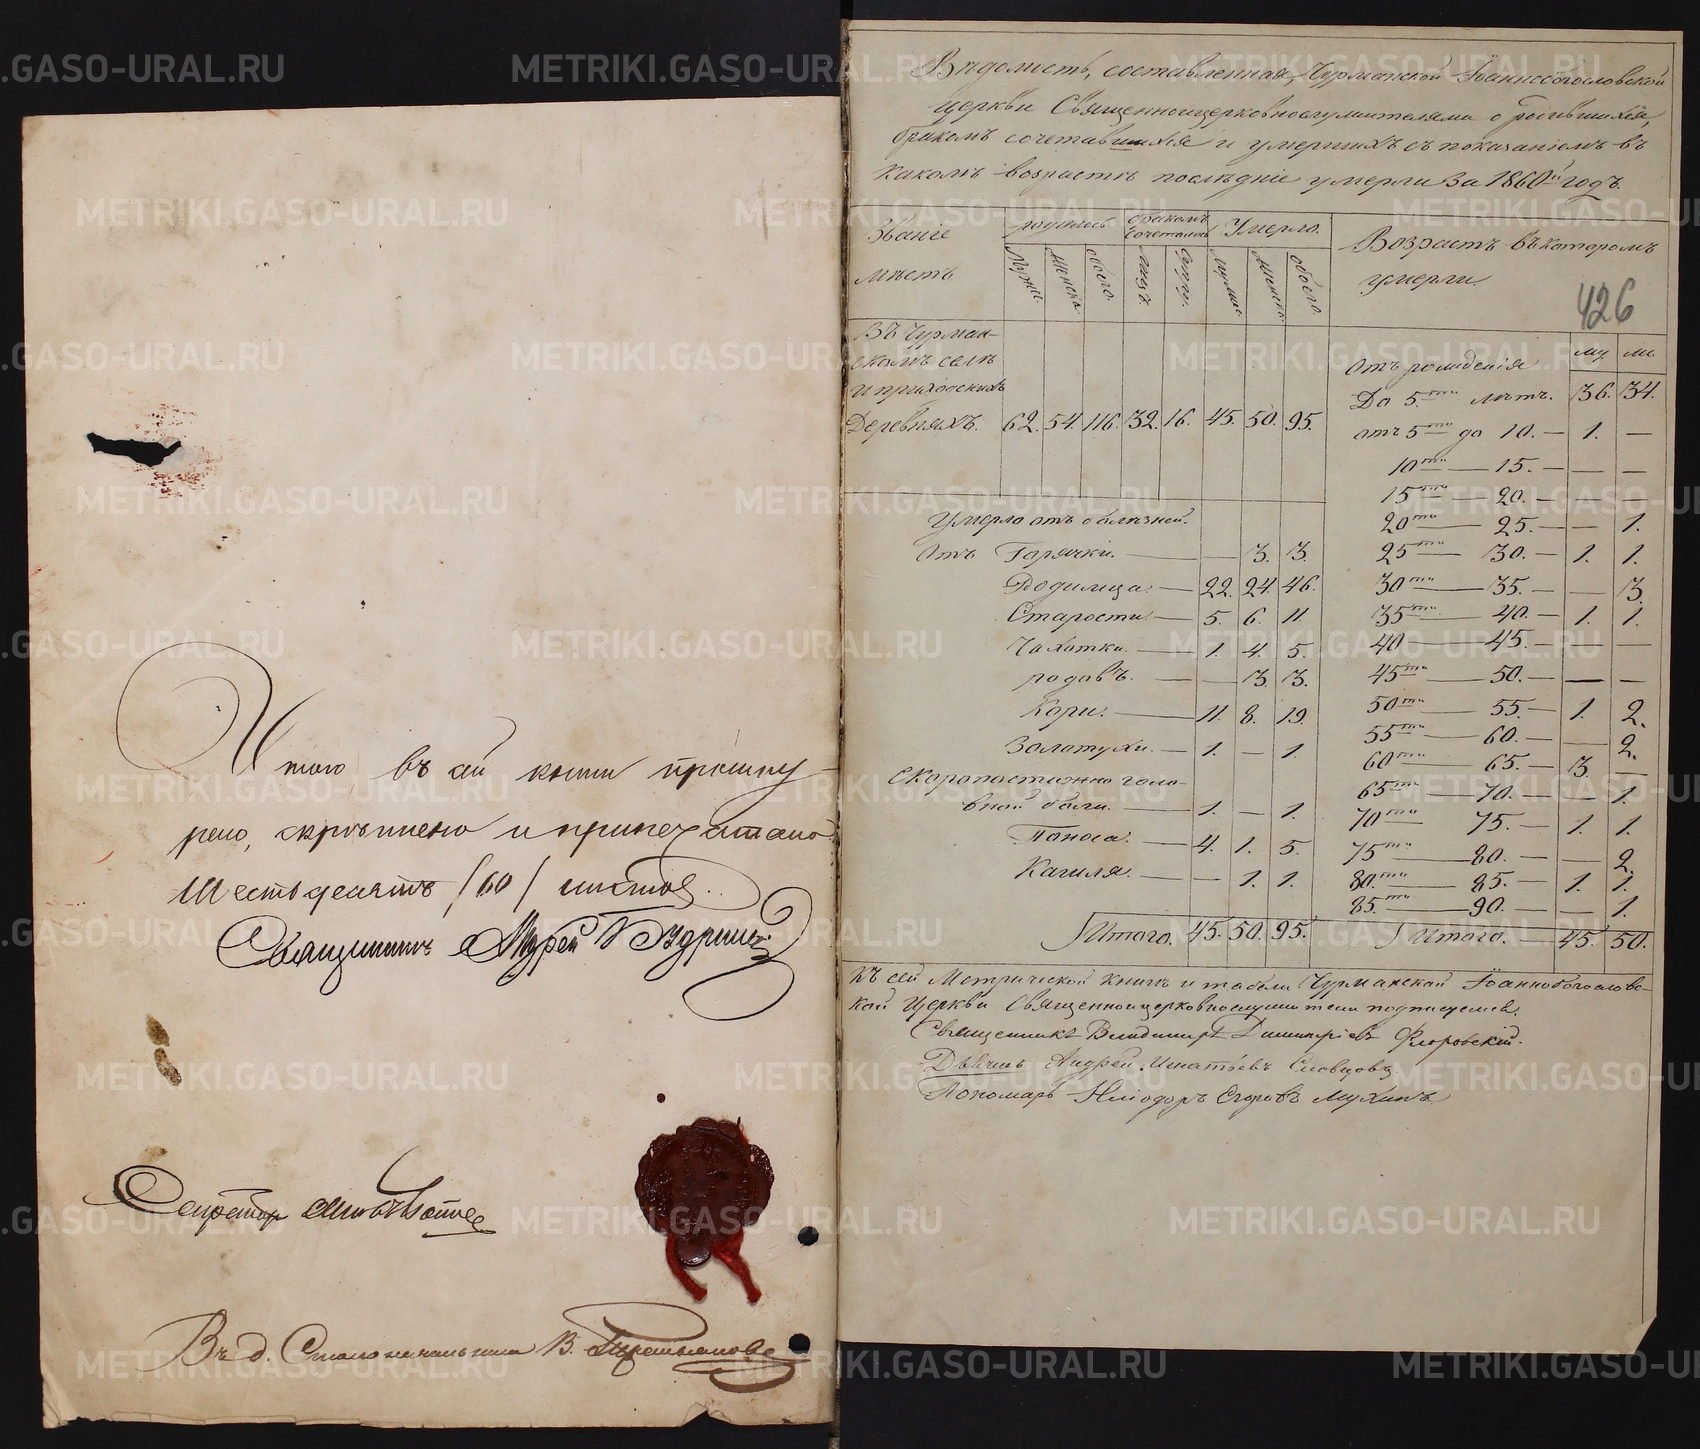 Итого въ сей книги прошну-
рено, скрѣплено и припечатано
шестьдесятъ /60/ листовъ.
Священникъ Андрей
Секретарь
Въ д. Столоначальника В. Третьяковъ
Вѣдомость, составленная, Чурманской Іоаннобогословской
церкви Священноцерковнослужителями о родившихся,
бракомъ сочетавшихся и умершихъ съ показаніемъ въ
какомъ возрастѣ послѣдніе умерли за 1860й годъ.
Званіе мѣстъ
родилось
бракомъ сочеталось
Умерло.
Возрастъ въ которомъ умерли.
Мужес. женска обоего. лицъ. супр. мужес женска обоего.
426
Въ Чурман-
скомъ селѣ
и приходскихъ
Деревняхъ. 62. 54. 116. 32. 16. 45. 50. 95.
Умерло отъ болѣзней.
Отъ Горячки. — — 3. 3.
Родимца. — 22. 24. 46.
Старости. — 5. 6. 11.
Чахотки. — 1. 4. 5.
родовъ. — — 3. 3.
Кори. — 11. 8. 19.
Золотухи. — 1. — 1.
Скоропостижно голо-
вной боли. — 1. — 1.
Поноса. — 4. 1. 5.
Кашля. — — 1. 1.
Итого. 45. 50. 95.
Отъ рожденія му. ж.
До 5ти лѣтъ. 36. 34.
отъ 5ти до 10. — 1. —
10ти — 15. — — —
15ти — 20. — — —
20ти — 25. — — 1.
25ти — 30. — 1. 1.
30ти — 35. — — 3.
35ти — 40. — 1. 1.
40 — 45. — — —
45ти — 50. — — —
50ти — 55. — 1. 2.
55ти — 60. — — 2.
60ти — 65. — 3. —
65ти — 70. — — 1.
70ти — 75. — 1. 1.
75ти — 80. — — 2.
80ти — 85. — 1. 1.
85ти — 90. — — 1.
Итого. — 45. 50.
Къ сей Метрической книгѣ и табели Чурманской Іоаннобогословс-
кой Церкви Священноцерковнослужители подписуемся.
Священникъ Владимиръ Димитріевъ Флоровскій.
Дьячекъ Андрей Игнатьевъ Словцовъ.
Пономарь Иліодоръ Егоровъ Мухинъ.
METRIKI.GASO-URAL.RU